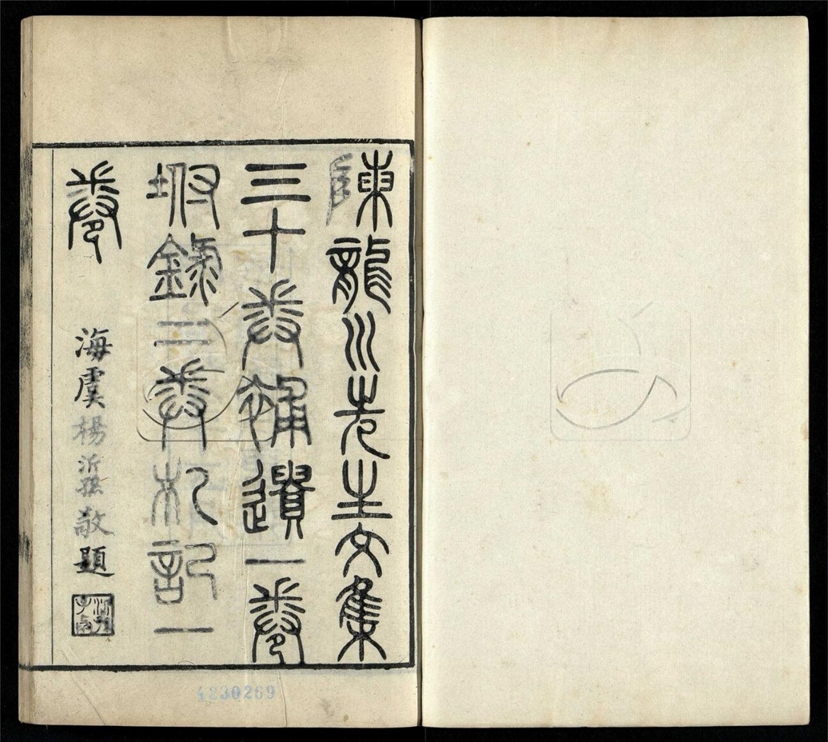 陳龍川先生文集
三十卷補遺一卷
坿錄二卷札記一
卷
海虞楊沂孫敬題
4230269